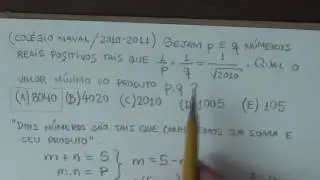 (COLÉGIO NAVAL/2010-2011) SEJAM p E q NÚMEROS
REAIS POSITIVOS TAIS QUE 1/p + 1/q = 1/√2010. QUAL O
VALOR MÍNIMO DO PRODUTO p.q ?
(A) 8040 (B) 4020 (C) 2010 (D) 1005 (E) 105
"DOIS NÚMEROS SÃO TAIS QUE CONHECEMOS SUA SOMA E
SEU PRODUTO".
m + n = S } m = S - n
m.n = P